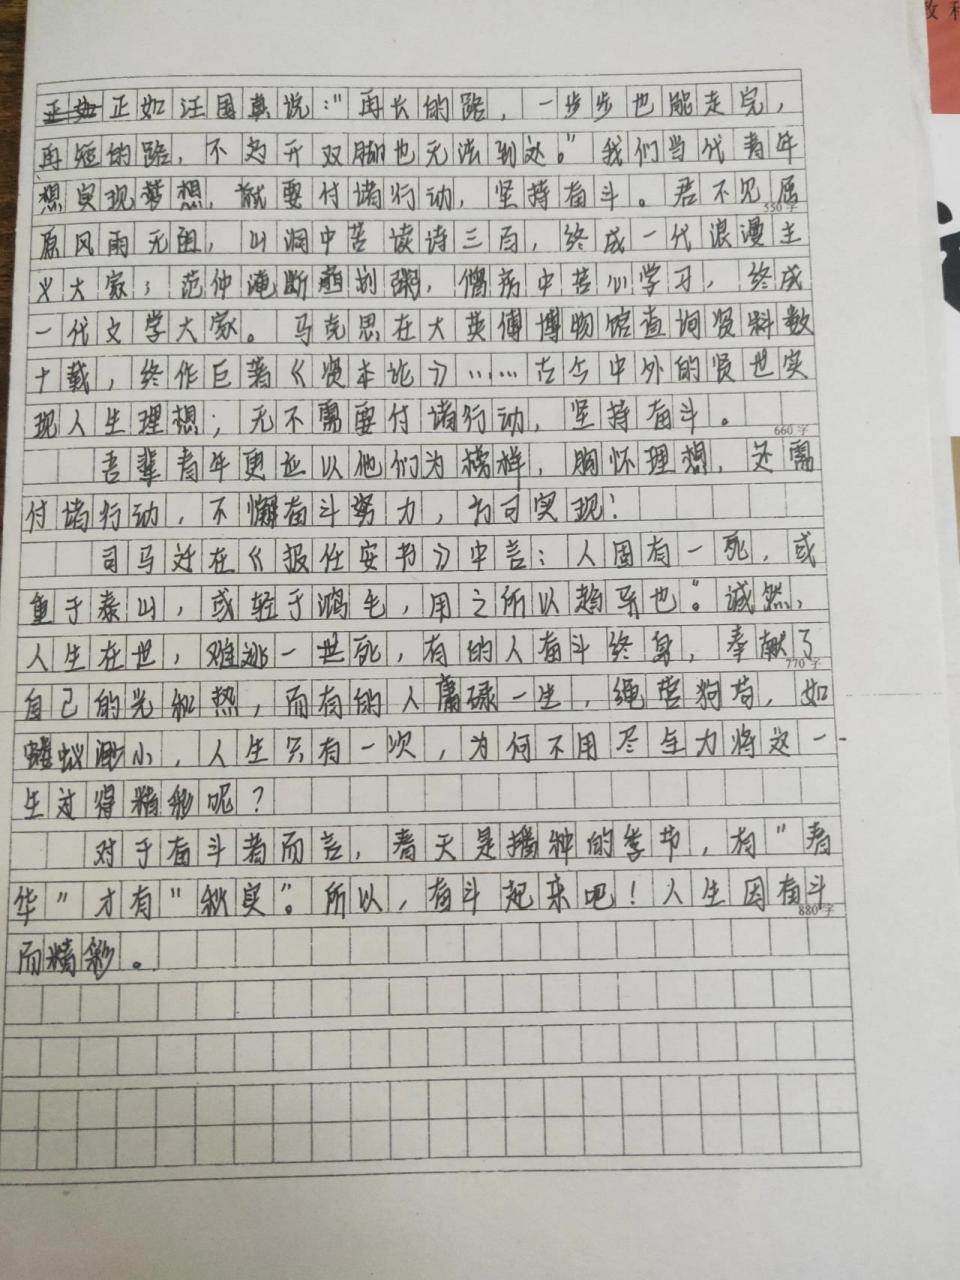 正如汪国真说："再长的路，一步步也能走完，
再短的路，不迈开双脚也无法到达。"我们当代青年
想实现梦想，就要付诸行动，坚持奋斗。君不见屈
550字
原风雨无阻，山洞中苦读诗三百，终成一代浪漫主
义大家；范仲淹断齑划粥，僧房中苦心学习，终成
一代文学大家。马克思在大英傅博物馆查询资料数
十载，终作巨著《资本论》……古今中外的贤世实
现人生理想；无不需要付诸行动，坚持奋斗。
660字
吾辈青年更应以他们为榜样，胸怀理想，还需
付诸行动，不懈奋斗努力，方可实现！
司马迁在《报任安书》中言：人固有一死，或
重于泰山，或轻于鸿毛，用之所以趋异也。"诚然，
人生在世，难逃一世死，有的人奋斗终身，奉献了
770字
自己的光和热，而有的人庸碌一生，绳营狗苟，如
蝼蚁渺小，人生只有一次，为何不用尽全力将这一
生过得精彩呢？
对于奋斗者而言，春天是播种的季节，有"春
华"才有"秋实"。所以，奋斗起来吧！人生因奋斗
880字
而精彩。